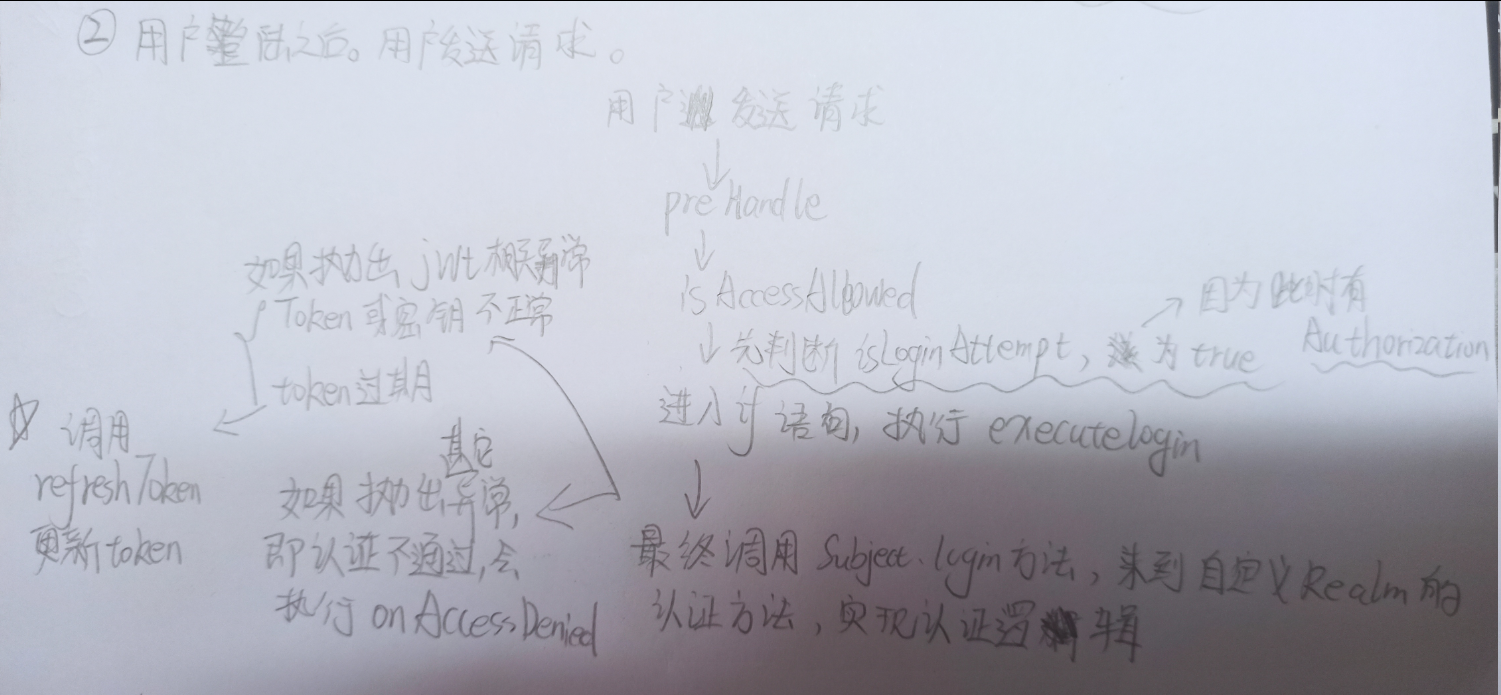 ② 用户登陆之后。用户发送请求。
用户 发送请求
preHandle
isAccessAllowed
先判断 isLoginAttempt, 为true
因为此时有
Authorization
进入if语句, 执行 executelogin
最终调用 Subject.login方法, 来到自定义Realm的
认证方法, 实现认证逻辑
如果抛出jwt相关异常
Token或密钥不正常
token过期
☆ 调用
refreshToken
更新token
其它
如果抛出异常,
即认证不通过, 会
执行onAccessDenied